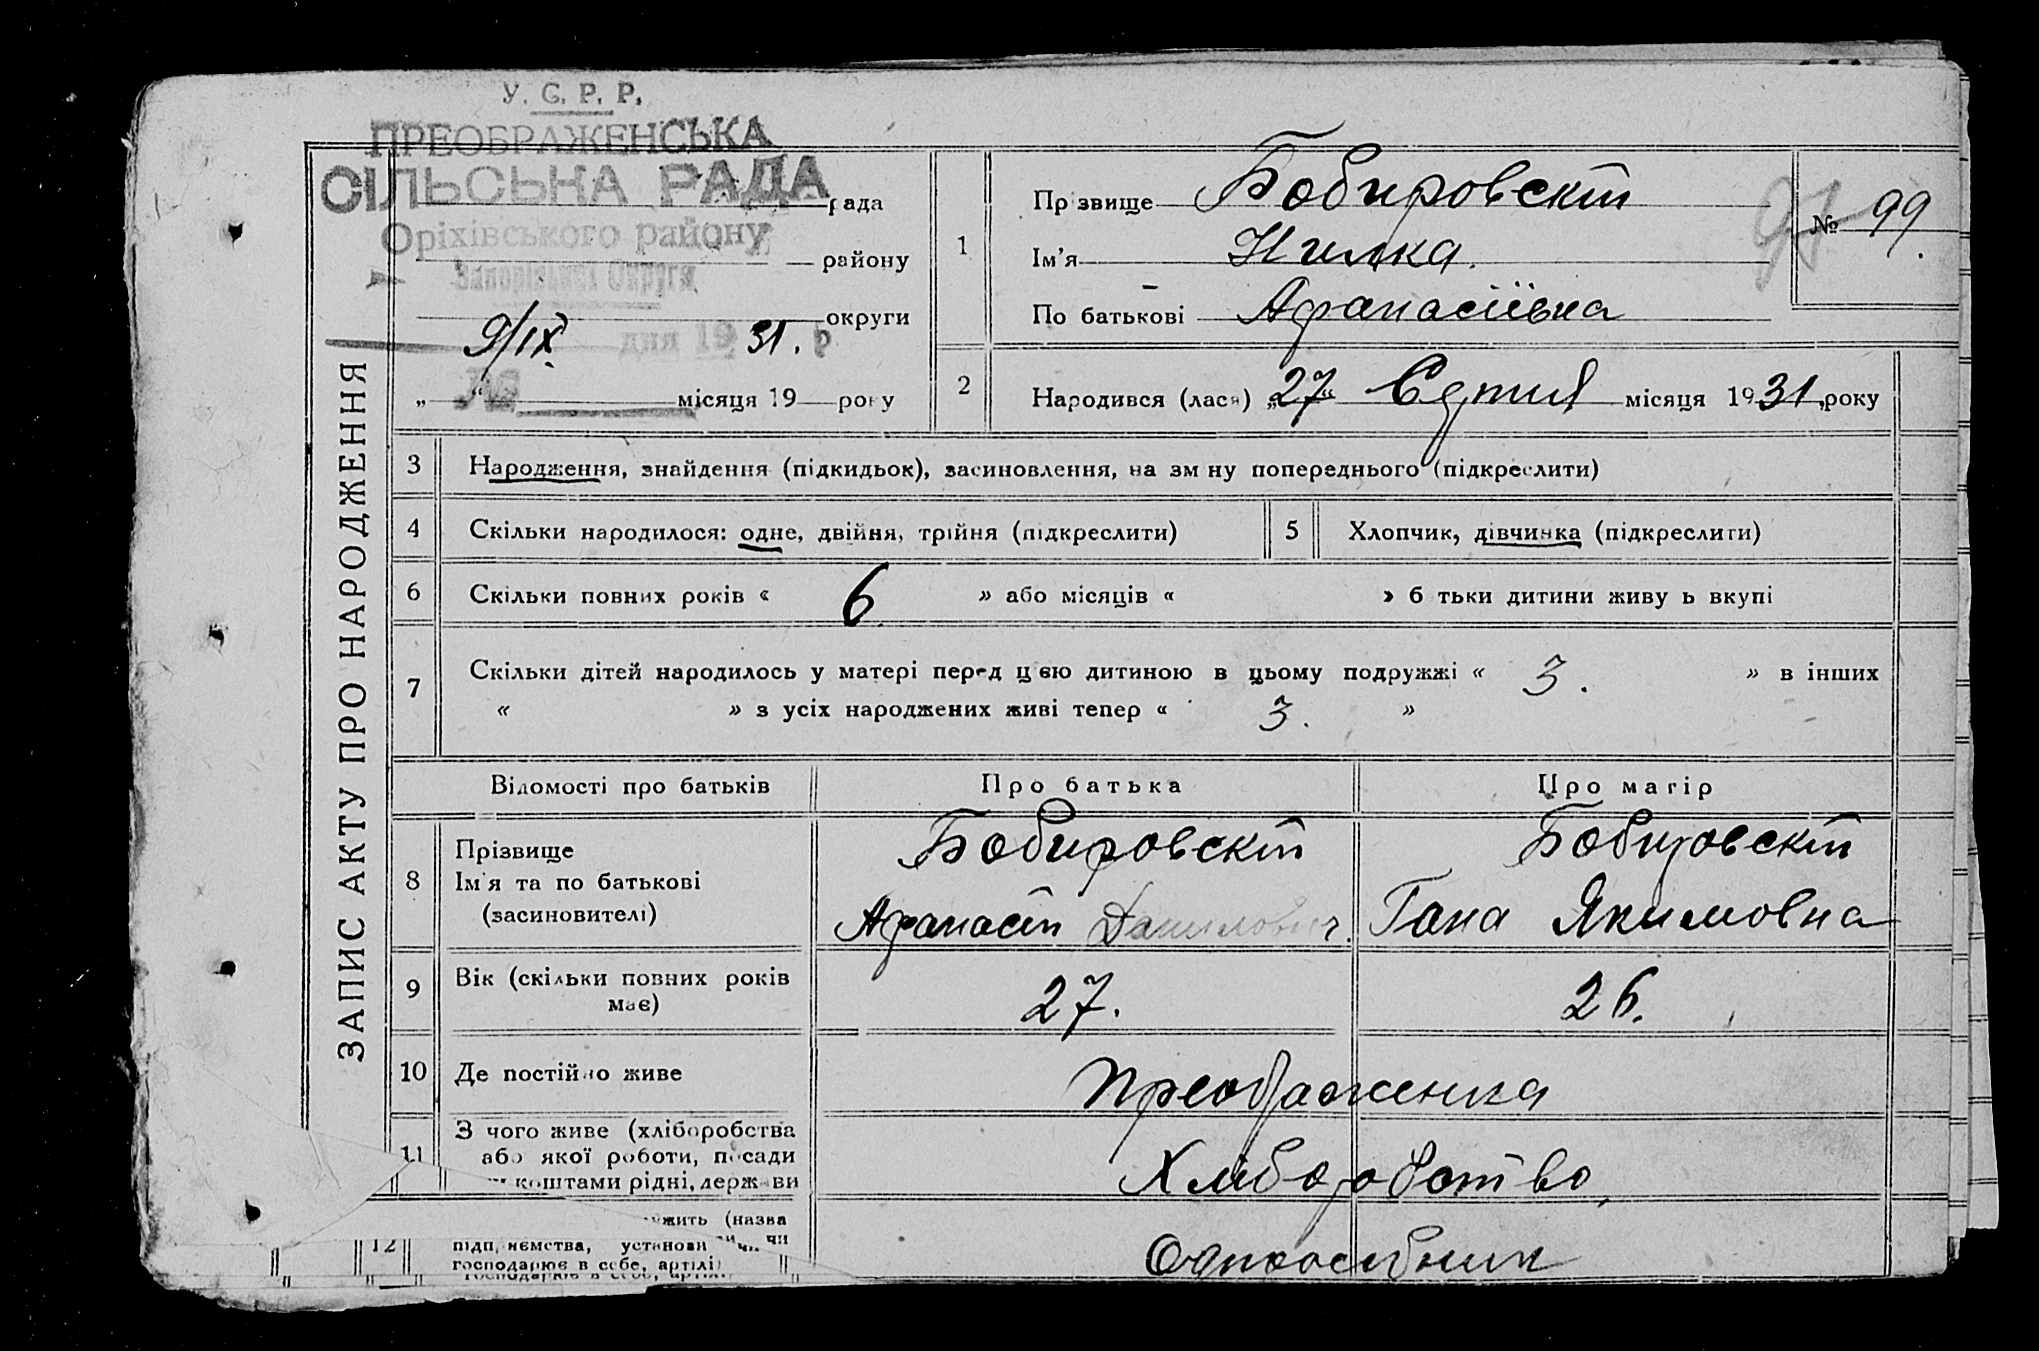 У. С. Р. Р.
ПРЕОБРАЖЕНСЬКА
СІЛЬСЬКА РАДА
рада
Оріхівського району
району
Запорізької Округи
округи
9/IX дня 19 31. р
№
„ “ місяця 19 року
ЗАПИС АКТУ ПРО НАРОДЖЕННЯ
1
Пр звище Бобировскій
Ім'я Нилка.
По батькові Афанасіївна
№ 99.
97
2 Народився (лася) „27“ Серпня місяця 1931 року
3 Народження, знайдення (підкидьок), засиновлення, на зм ну попереднього (підкреслити)
4 Скільки народилося: одне, двійня, трійня (підкреслити)
5 Хлопчик, дівчинка (підкреслити)
6 Скільки повних років « 6 » або місяців « » б тьки дитини живу ь вкупі
7 Скільки дітей народилось у матері перед цєю дитиною в цьому подружжі « 3. » в інших
« » з усіх народжених живі тепер « 3. »
Відомості про батьків Про батька Про матір
8 Прізвище
Ім'я та по батькові
(засиновителі)
Бобировскій
Афанасій Данилович.
Бобировскій
Гана Якимовна
9 Вік (скільки повних років
має)
27. 26.
10 Де постійно живе Преображенка
11 З чого живе (хліборобства
або якої роботи, посади
коштами рідні, держави
Хліборобство,
12 ужить (назва
підприємства, установи чи
господарює в себе, артілі)
Одноосібник